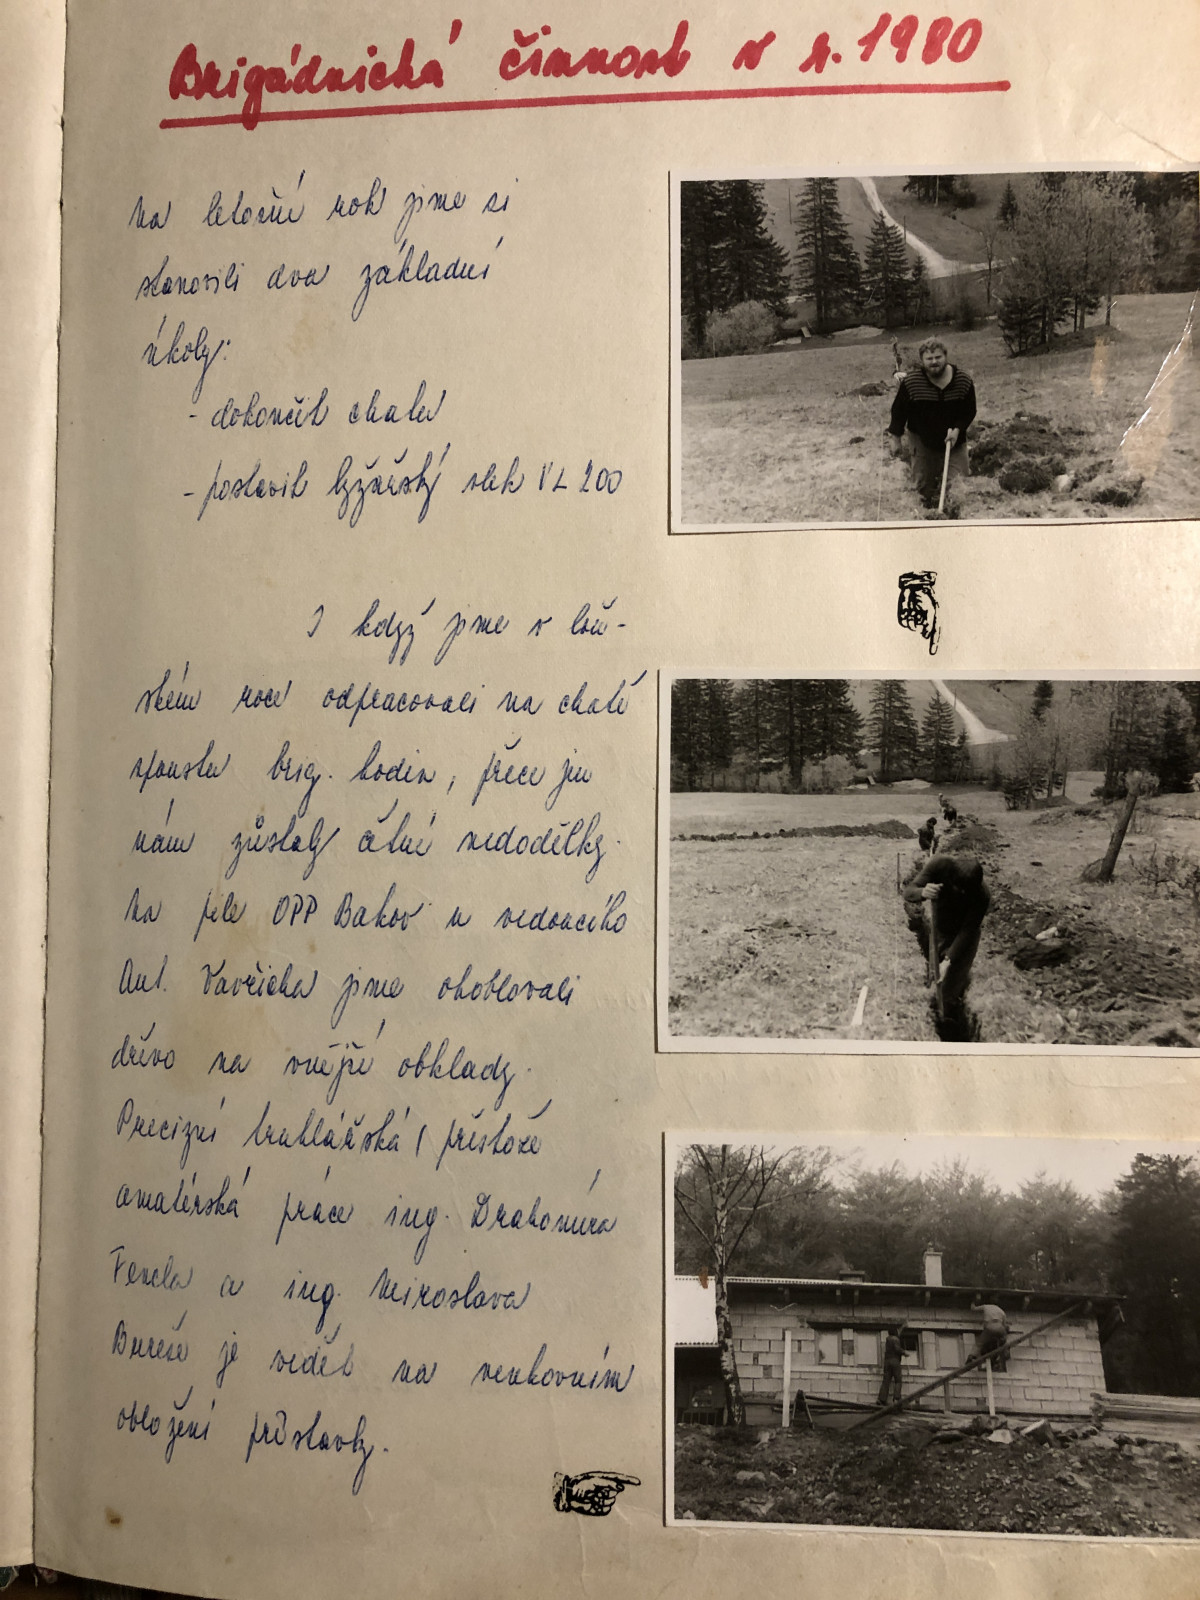 Brigádnická činnost v r. 1980
Na letošní rok jsme si
stanovili dva základní
úkoly:
- dokončit chatu
- postavit lyžařský vlek VL 200
I když jsme v loň-
ském roce odpracovali na chatě
spoustu brig. hodin, přece jen
nám zůstaly četné nedodělky.
Na pile OPP Bakov u vedoucího
Ant. Vavřicha jsme ohoblovali
dřevo na vnější obklady.
Precizní truhlářská ( přestože
amatérská práce ing. Drahomíra
Fencla a ing. Miroslava
Bureše je vidět na venkovním
obložení přístavby.